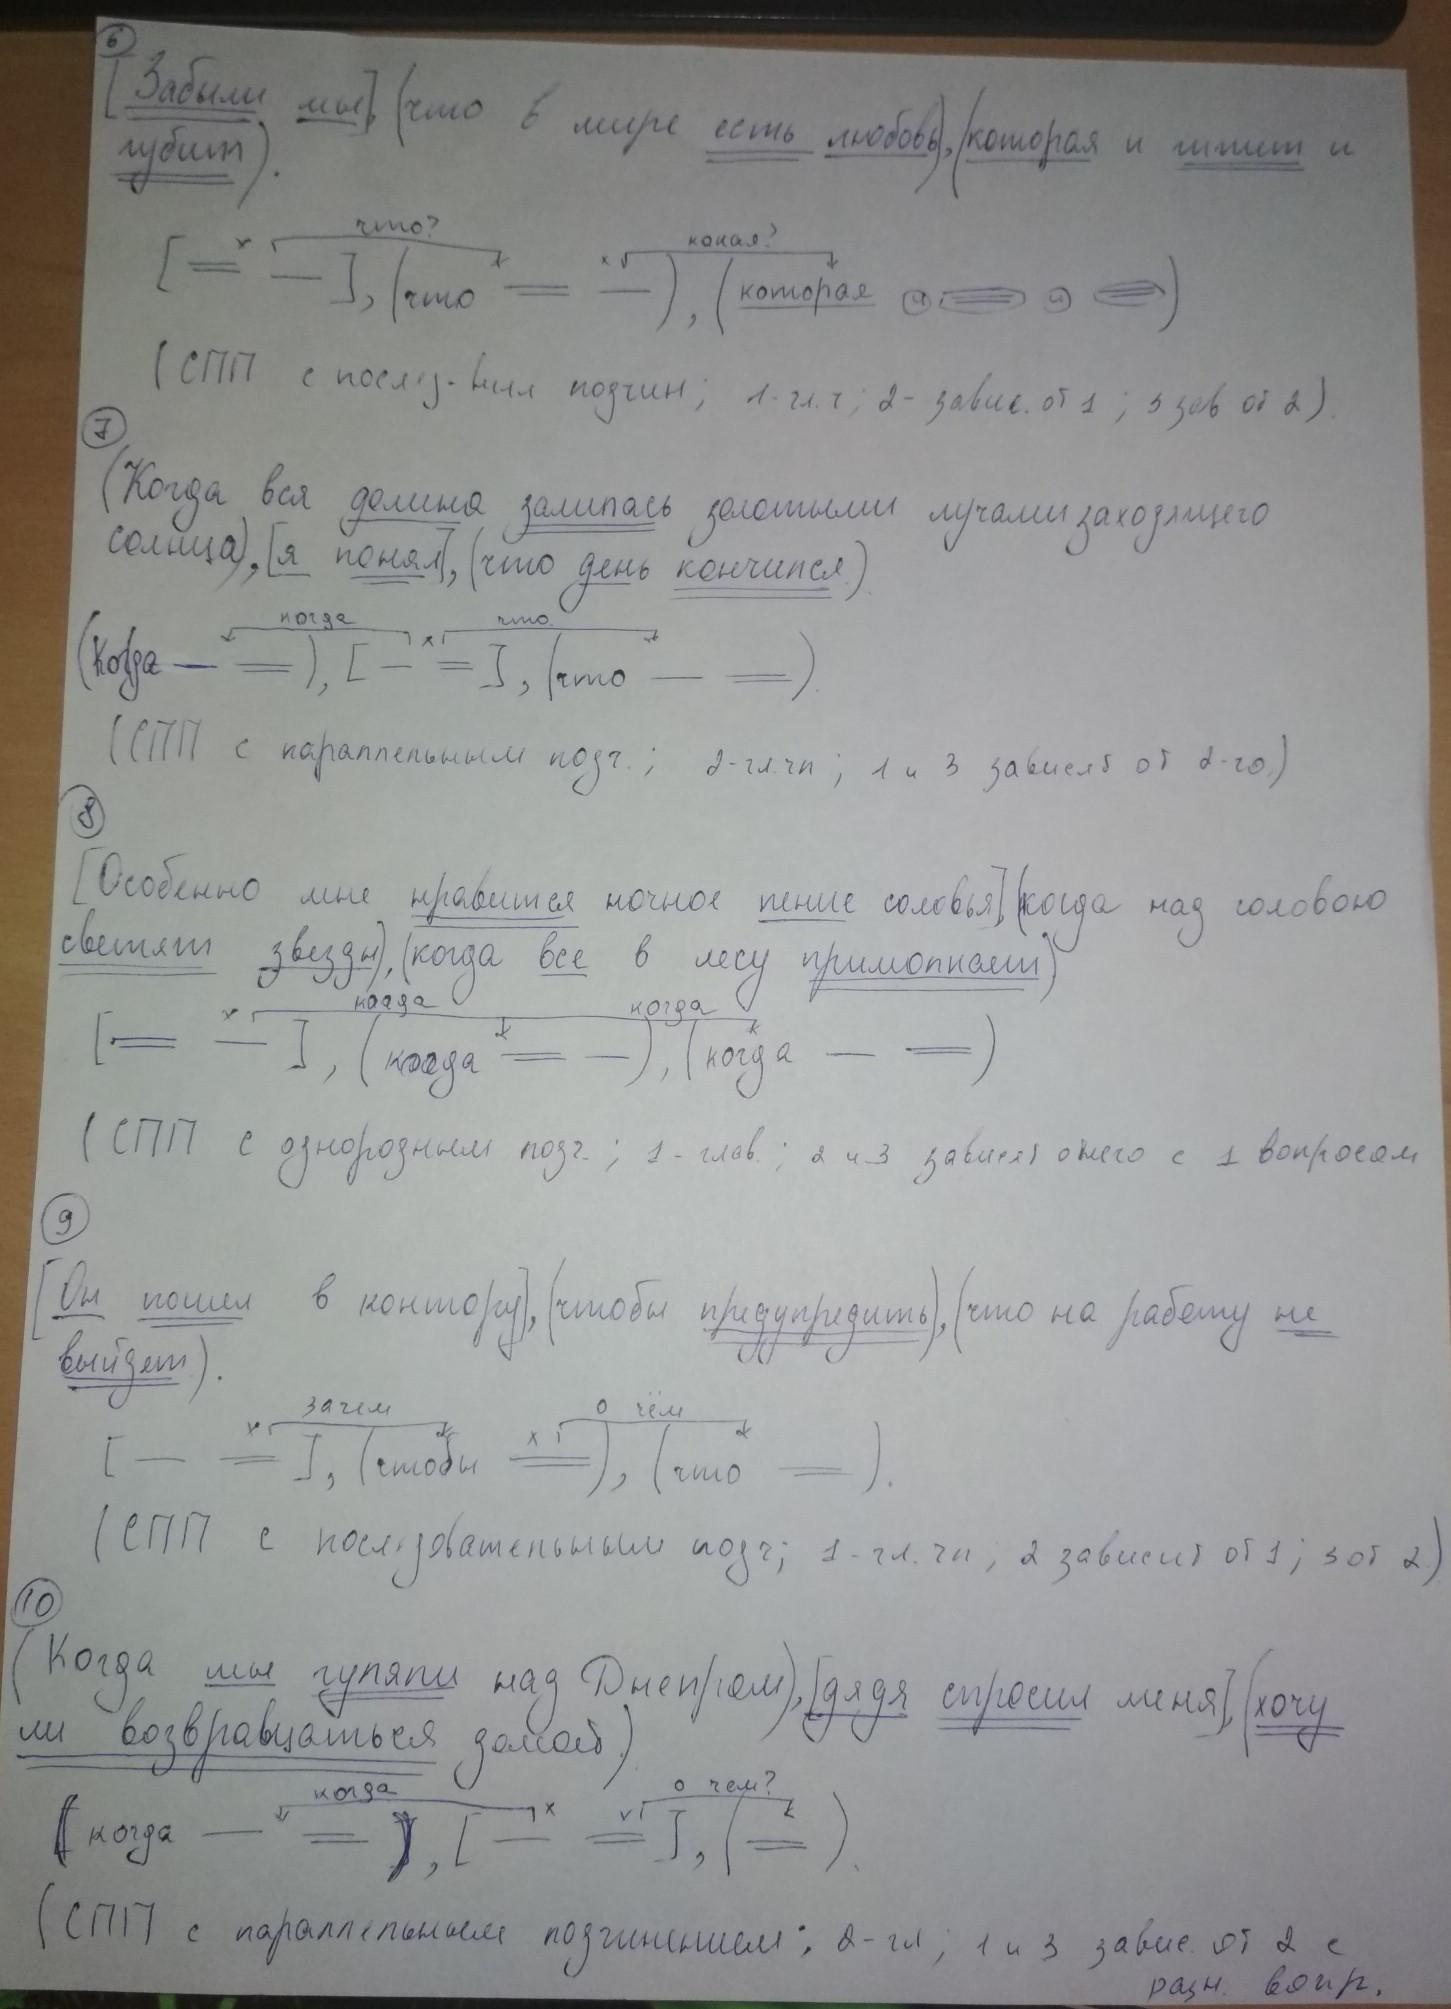 6
[Забыли мы], (что в мире есть любовь), (которая и
губит).
что? какая?
[ ], (что ), (которая и и )
(СПП с подчин; 1-гл.ч; 2-завис. от 1; 3 зав от 2).
7
(Когда вся долина залилась золотыми лучами заходящего
солнца), [я понял], (что день кончился).
когда что
(Когда ), [ ], (что ).
(СПП с параллельным подч.; 2-гл.чп; 1 и 3 зависят от 2-го.)
8
[Особенно мне нравится ночное пение соловья], (когда над головою
светят звезды), (когда все в лесу примолкает)
когда когда
[ ], (когда ), (когда )
(СПП с однородным подч.; 1-глав.; 2 и 3 зависят от него с 1 вопросом
9
[Он пошел в контору], (чтобы предупредить), (что на работу не
выйдет).
зачем о чём
[ ], (чтобы ), (что ).
(СПП с последовательным подч; 1-гл.чп; 2 зависит от 1; 3 от 2.)
10
(Когда мы гуляли над Днепром), [дядя спросил меня], (хочу
ли возвращаться домой.)
когда о чем?
(когда ), [ ], ( ).
(СПП с параллельным подчинением; 2-гл; 1 и 3 завис. от 2 с
разн. вопр.